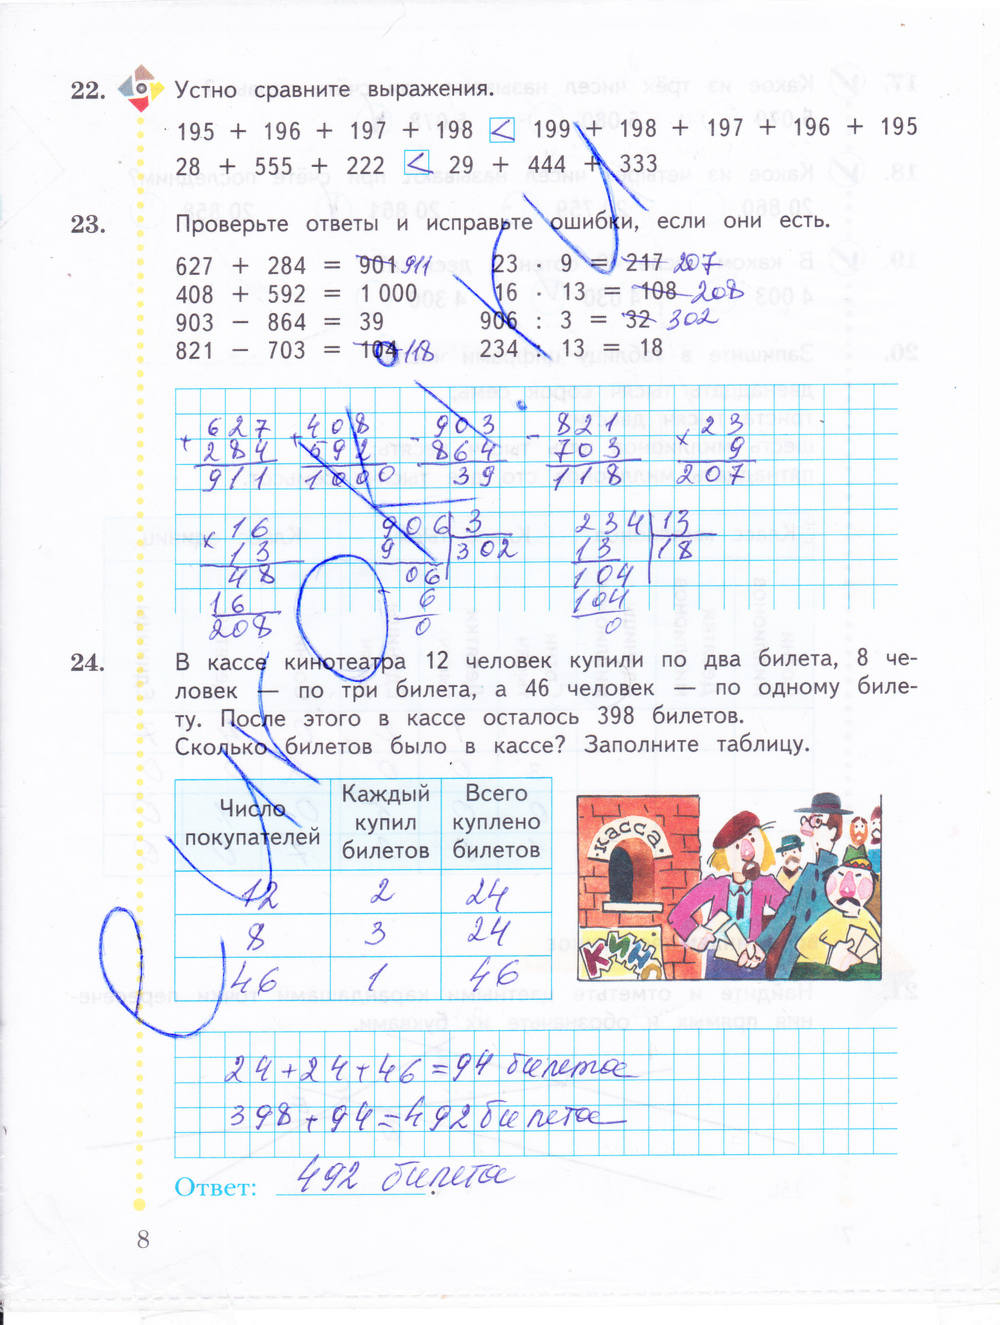 22. Устно сравните выражения.
195 + 196 + 197 + 198 < 199 + 198 + 197 + 196 + 195
28 + 555 + 222 < 29 + 444 + 333
23. Проверьте ответы и исправьте ошибки, если они есть.
627 + 284 = 901 911 23 · 9 = 217 207
408 + 592 = 1 000 16 · 13 = 108 208
903 − 864 = 39 906 : 3 = 32 302
821 − 703 = 104 118 234 : 13 = 18
627 408 903 821 23
+ 284 + 592 - 864 - 703 × 9
911 1000 39 118 207
16 906 3 234 13
× 13 9 302 13 18
48 06 104
16 6 104
208 0 0
24. В кассе кинотеатра 12 человек купили по два билета, 8 че-
ловек — по три билета, а 46 человек — по одному биле-
ту. После этого в кассе осталось 398 билетов.
Сколько билетов было в кассе? Заполните таблицу.
Число покупателей Каждый купил билетов Всего куплено билетов
12 2 24
8 3 24
46 1 46
касса
кино
24+24+46=94 билета
398+94=492 билета
Ответ: 492 билета.
8